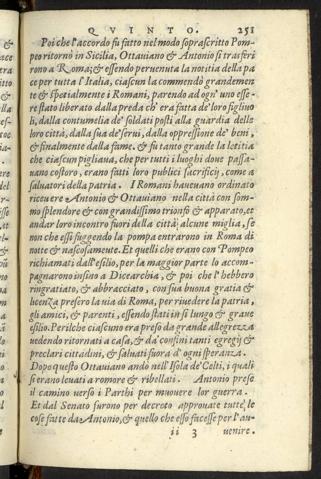 QVINTO. 251
Poi che l'accordo fu fatto nel modo soprascritto Pom-
peo ritornò in Sicilia, Ottauiano & Antonio si trasferi
rono a Roma; & essendo peruenuta la notitia della pa
ce per tutta l'Italia, ciascun la commendò grandemen
te & spetialmente i Romani, parendo ad ogn'uno esse-
re stato liberato dalla preda ch'era fatta de' loro figliuo
li, dalla contumelia de' soldati posti alla guardia delle
loro città, dalla fua de' serui, dalla oppressione de' beni,
& finalmente dalla fame. & fu tanto grande la letitia
che ciascun pigliaua, che per tutti i luoghi doue passa-
uano costoro, erano fatti loro publici sacrificij, come a
saluatori della patria. I Romani haueuano ordinato
riceuere Antonio & Ottauiano nella città con som-
mo splendore & con grandissimo trionfo & apparato, et
andar loro incontro fuori della città alcune miglia, se
non che essi fuggendo la pompa entrarono in Roma di
notte & nascosamente. Et quelli che erano con Pompeo
richiamati dall'esilio, per la maggior parte lo accom-
pagnarono insino a Dicearchia, & poi che l'hebbero
ringratiato, & abbracciato, con sua buona gratia &
licenza presero la via di Roma, per riuedere la patria,
gli amici, & parenti, essendo stati in si lungo & graue
esilio. Perilche ciascuno era preso da grande allegrezza
uedendo ritornati a casa, & da confini tanti egregij &
preclari cittadini, & saluati fuora d'ogni speranza.
Dopo questo Ottauiano andò nell'Isola de' Celti, i quali
si erano leuati a romore & ribellati. Antonio prese
il camino uerso i Parthi per muouere lor guerra.
Et dal Senato furono per decreto approuate tutte le
cose fatte da Antonio, & quello che esso facesse per l'au-
ii 3 uenire.